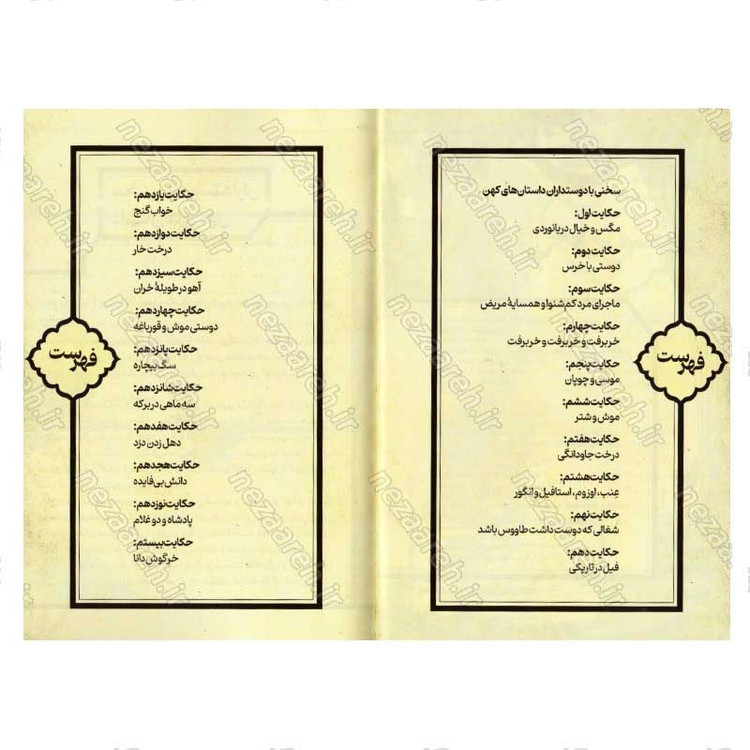 فهرست
سخنی با دوستداران داستان‌های کهن
حکایت اول:
مگس و خیال دریانوردی
حکایت دوم:
دوستی با خرس
حکایت سوم:
ماجرای مرد کم‌شنوا و همسایهٔ مریض
حکایت چهارم:
خر برفت و خر برفت و خر برفت
حکایت پنجم:
موسی و چوپان
حکایت ششم:
موش و شتر
حکایت هفتم:
درخت جاودانگی
حکایت هشتم:
عِنب، اوزوم، استافیل و انگور
حکایت نهم:
شغالی که دوست داشت طاووس باشد
حکایت دهم:
فیل در تاریکی
فهرست
حکایت یازدهم:
خواب گنج
حکایت دوازدهم:
درخت خار
حکایت سیزدهم:
آهو در طویلهٔ خران
حکایت چهاردهم:
دوستی موش و قورباغه
حکایت پانزدهم:
سگ بیچاره
حکایت شانزدهم:
سه ماهی در برکه
حکایت هفدهم:
دهل زدن دزد
حکایت هجدهم:
دانش بی‌فایده
حکایت نوزدهم:
پادشاه و دو غلام
حکایت بیستم:
خرگوش دانا
nezaareh.ir